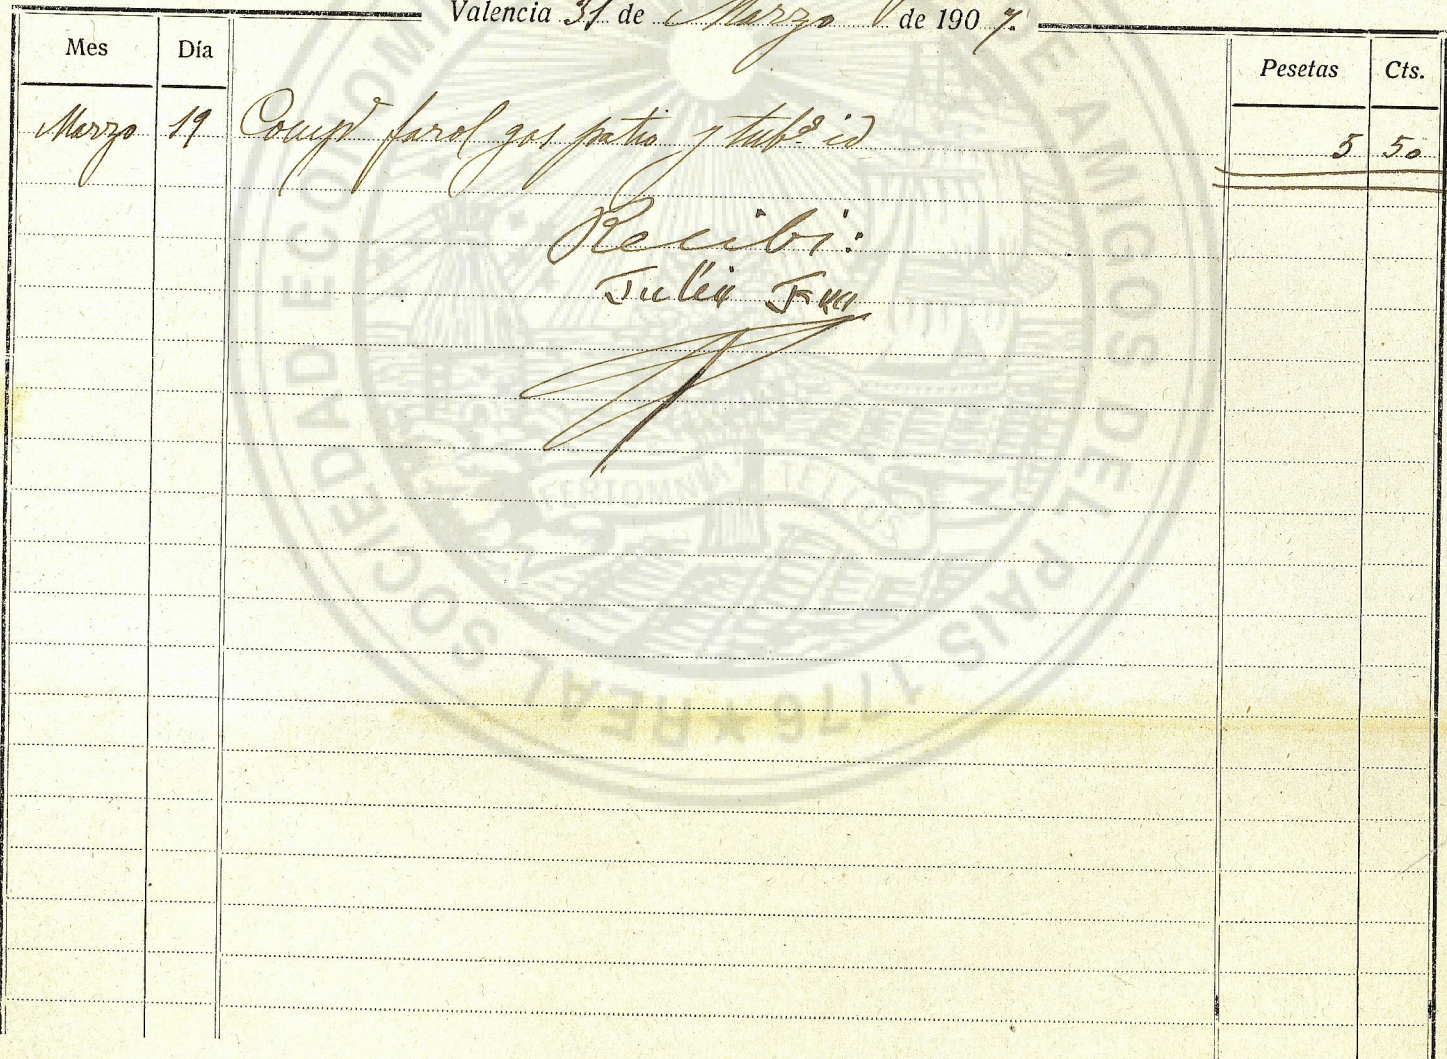 Valencia 31 de Marzo de 1907.
Mes Día Pesetas Cts.
Marzo 19 Compº farol gas patio y tubª id 5 50
Recibí:
Julio
REAL SOCIEDAD ECONOMICA DE AMIGOS DEL PAIS 1776
FERT OMNIA TELLUS